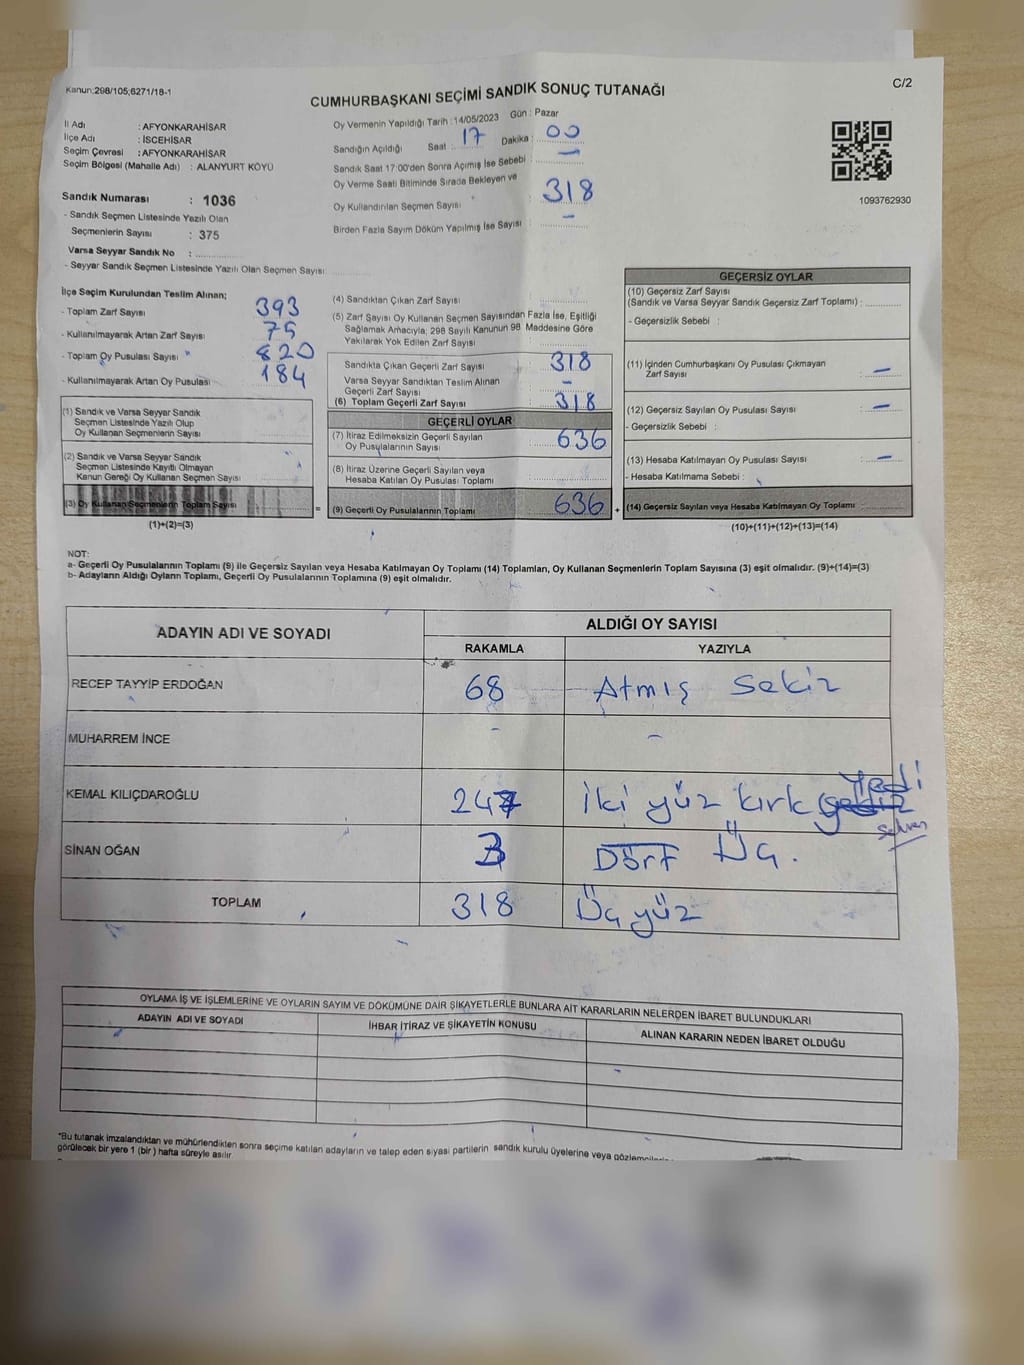 Kanun:298/105;6271/18-1
C/2
CUMHURBAŞKANI SEÇİMİ SANDIK SONUÇ TUTANAĞI
İl Adı : AFYONKARAHİSAR
İlçe Adı : İSCEHİSAR
Seçim Çevresi : AFYONKARAHİSAR
Seçim Bölgesi (Mahalle Adı) : ALANYURT KÖYÜ
Sandık Numarası : 1036
- Sandık Seçmen Listesinde Yazılı Olan
Seçmenlerin Sayısı : 375
Varsa Seyyar Sandık No :
- Seyyar Sandık Seçmen Listesinde Yazılı Olan Seçmen Sayısı
Oy Vermenin Yapıldığı Tarih : 14/05/2023 Gün : Pazar
Sandığın Açıldığı Saat : 17 Dakika : 00
Sandık Saat 17:00'den Sonra Açımış İse Sebebi : -
Oy Verme Saati Bitiminde Sırada Bekleyen ve
Oy Kullandırılan Seçmen Sayısı : 318
Birden Fazla Sayım Döküm Yapılmış İse Sayısı : -
1093762930
İlçe Seçim Kurulundan Teslim Alınan;
- Toplam Zarf Sayısı : 393
- Kullanılmayarak Artan Zarf Sayısı : 75
- Toplam Oy Pusulası Sayısı : 820
- Kullanılmayarak Artan Oy Pusulası : 184
(1) Sandık ve Varsa Seyyar Sandık
Seçmen Listesinde Yazılı Olup
Oy Kullanan Seçmenlerin Sayısı
(2) Sandık ve Varsa Seyyar Sandık
Seçmen Listesinde Kayıtlı Olmayan
Kanun Gereği Oy Kullanan Seçmen Sayısı
(3) Oy Kullanan Seçmenlerin Toplam Sayısı =
(1)+(2)=(3)
(4) Sandıktan Çıkan Zarf Sayısı :
(5) Zarf Sayısı Oy Kullanan Seçmen Sayısından Fazla İse, Eşitliği
Sağlamak Amacıyla; 298 Sayılı Kanunun 98. Maddesine Göre
Yakılarak Yok Edilen Zarf Sayısı
Sandıkta Çıkan Geçerli Zarf Sayısı 318
Varsa Seyyar Sandıktan Teslim Alınan
Geçerli Zarf Sayısı -
(6) Toplam Geçerli Zarf Sayısı 318
GEÇERLİ OYLAR
(7) İtiraz Edilmeksizin Geçerli Sayılan
Oy Pusulalarının Sayısı 636
(8) İtiraz Üzerine Geçerli Sayılan veya
Hesaba Katılan Oy Pusulası Toplamı
(9) Geçerli Oy Pusulalarının Toplamı 636 +
GEÇERSİZ OYLAR
(10) Geçersiz Zarf Sayısı
(Sandık ve Varsa Seyyar Sandık Geçersiz Zarf Toplamı) :
- Geçersizlik Sebebi :
(11) İçinden Cumhurbaşkanı Oy Pusulası Çıkmayan
Zarf Sayısı : -
(12) Geçersiz Sayılan Oy Pusulası Sayısı : -
- Geçersizlik Sebebi :
(13) Hesaba Katılmayan Oy Pusulası Sayısı : -
- Hesaba Katılmama Sebebi :
(14) Geçersiz Sayılan veya Hesaba Katılmayan Oy Toplamı :
(10)+(11)+(12)+(13)=(14)
NOT:
a- Geçerli Oy Pusulalarının Toplamı (9) ile Geçersiz Sayılan veya Hesaba Katılmayan Oy Toplamı (14) Toplamları, Oy Kullanan Seçmenlerin Toplam Sayısına (3) eşit olmalıdır. (9)+(14)=(3)
b- Adayların Aldığı Oyların Toplamı, Geçerli Oy Pusulalarının Toplamına (9) eşit olmalıdır.
ADAYIN ADI VE SOYADI
ALDIĞI OY SAYISI
RAKAMLA YAZIYLA
RECEP TAYYİP ERDOĞAN 68 Atmış Sekiz
MUHARREM İNCE - -
KEMAL KILIÇDAROĞLU 247 İki yüz kırk sekiz Yedi
SİNAN OĞAN 3 Dört Üç.
TOPLAM 318 Üç yüz
OYLAMA İŞ VE İŞLEMLERİNE VE OYLARIN SAYIM VE DÖKÜMÜNE DAİR ŞİKAYETLERLE BUNLARA AİT KARARLARIN NELERDEN İBARET BULUNDUKLARI
ADAYIN ADI VE SOYADI İHBAR İTİRAZ VE ŞİKAYETİN KONUSU ALINAN KARARIN NEDEN İBARET OLDUĞU
*Bu tutanak imzalandıktan ve mühürlendikten sonra seçime katılan adayların ve talep eden siyasi partilerin sandık kurulu üyelerine veya gözlemcilerine
görülecek bir yere 1 (bir) hafta süreyle asılır.